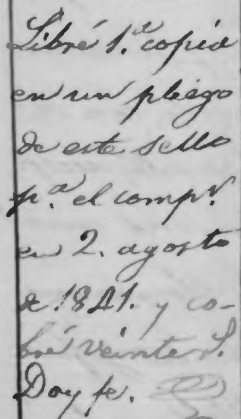 Libré 1.ª copia
en un pliego
de este sello
p.ª el comp.r
en 2. agosto
de 1841. y co-
bré veinte r.
Doy fe.